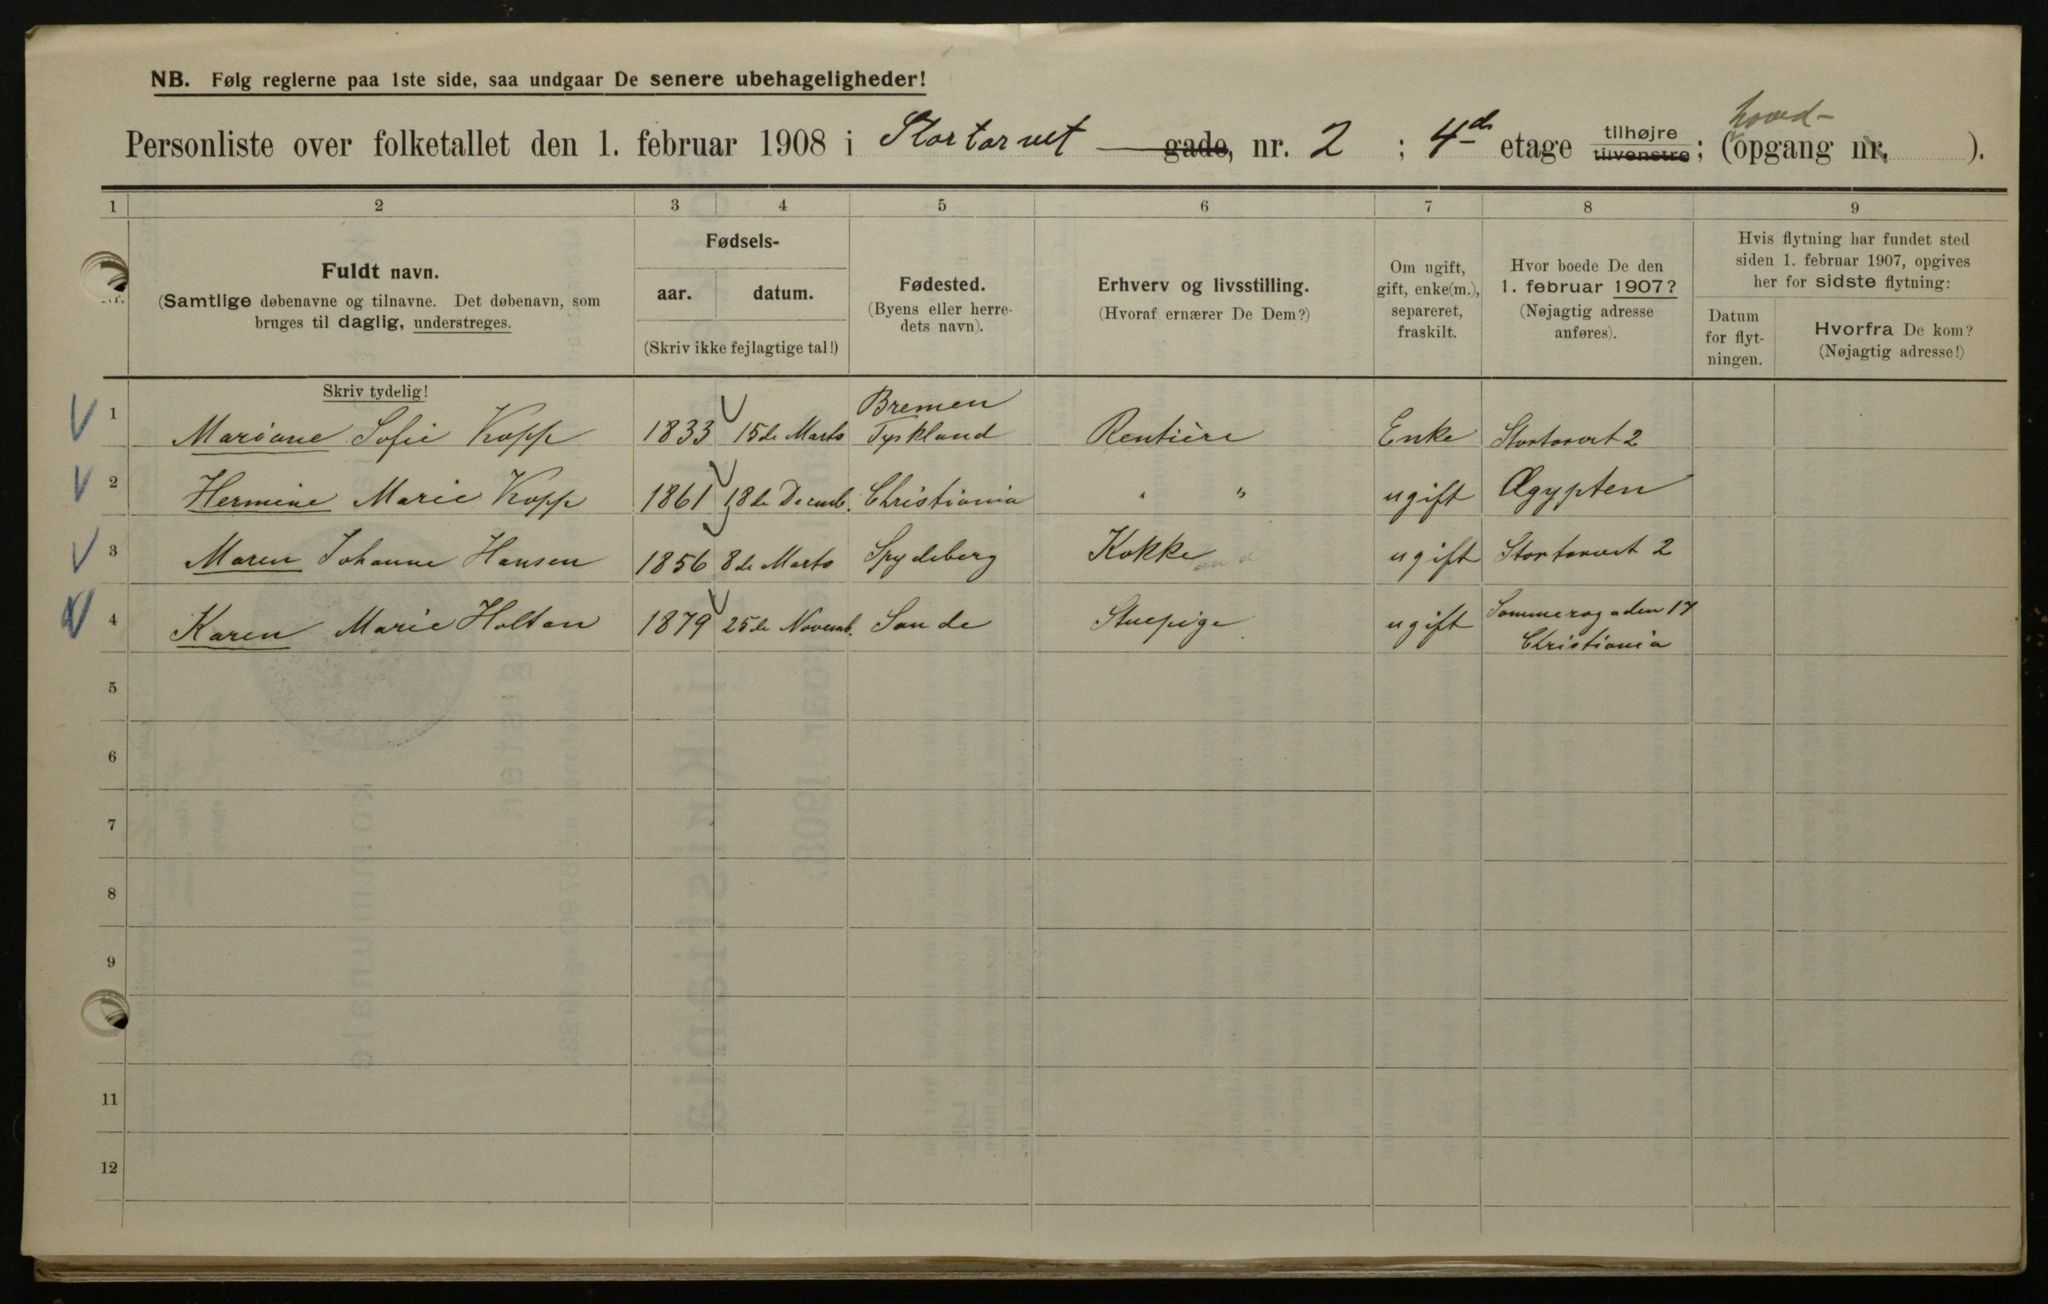 NB. Følg reglerne paa 1ste side, saa undgaar De senere ubehageligheder!
hoved-
Personliste over folketallet den 1. februar 1908 i Stortorvet gade, nr. 2 ; 4de etage tilhøjre tilvenstre; (opgang nr. ).
1 2 3 4 5 6 7 8 9
Fuldt navn.
(Samtlige døbenavne og tilnavne. Det døbenavn, som
bruges til daglig, understreges.
Skriv tydelig!
Fødsels-
aar. datum.
(Skriv ikke fejlagtige tal!)
Fødested.
(Byens eller herre-
dets navn).
Erhverv og livsstilling.
(Hvoraf ernærer De Dem?)
Om ugift,
gift, enke(m.),
separeret,
fraskilt.
Hvor boede De den
1. februar 1907?
(Nøjagtig adresse
anføres).
Hvis flytning har fundet sted
siden 1. februar 1907, opgives
her for sidste flytning:
Datum
for flyt-
ningen.
Hvorfra De kom?
(Nøjagtig adresse!)
Bremen
1 Mariane Sofie Kopp 1833 15de Marts Tyskland Rentière Enke Stortorvet 2
2 Hermine Marie Kopp 1861 18de Decemb. Christiania " " ugift Ægypten
3 Maren Johanne Hansen 1856 8de Marts Spydeberg Kokke ugift Stortorvet 2
4 Karen Marie Holtan 1879 25de Novemb. Sande Stuepige ugift Sommerogaden 17
Christiania
5
6
7
8
9
11
12